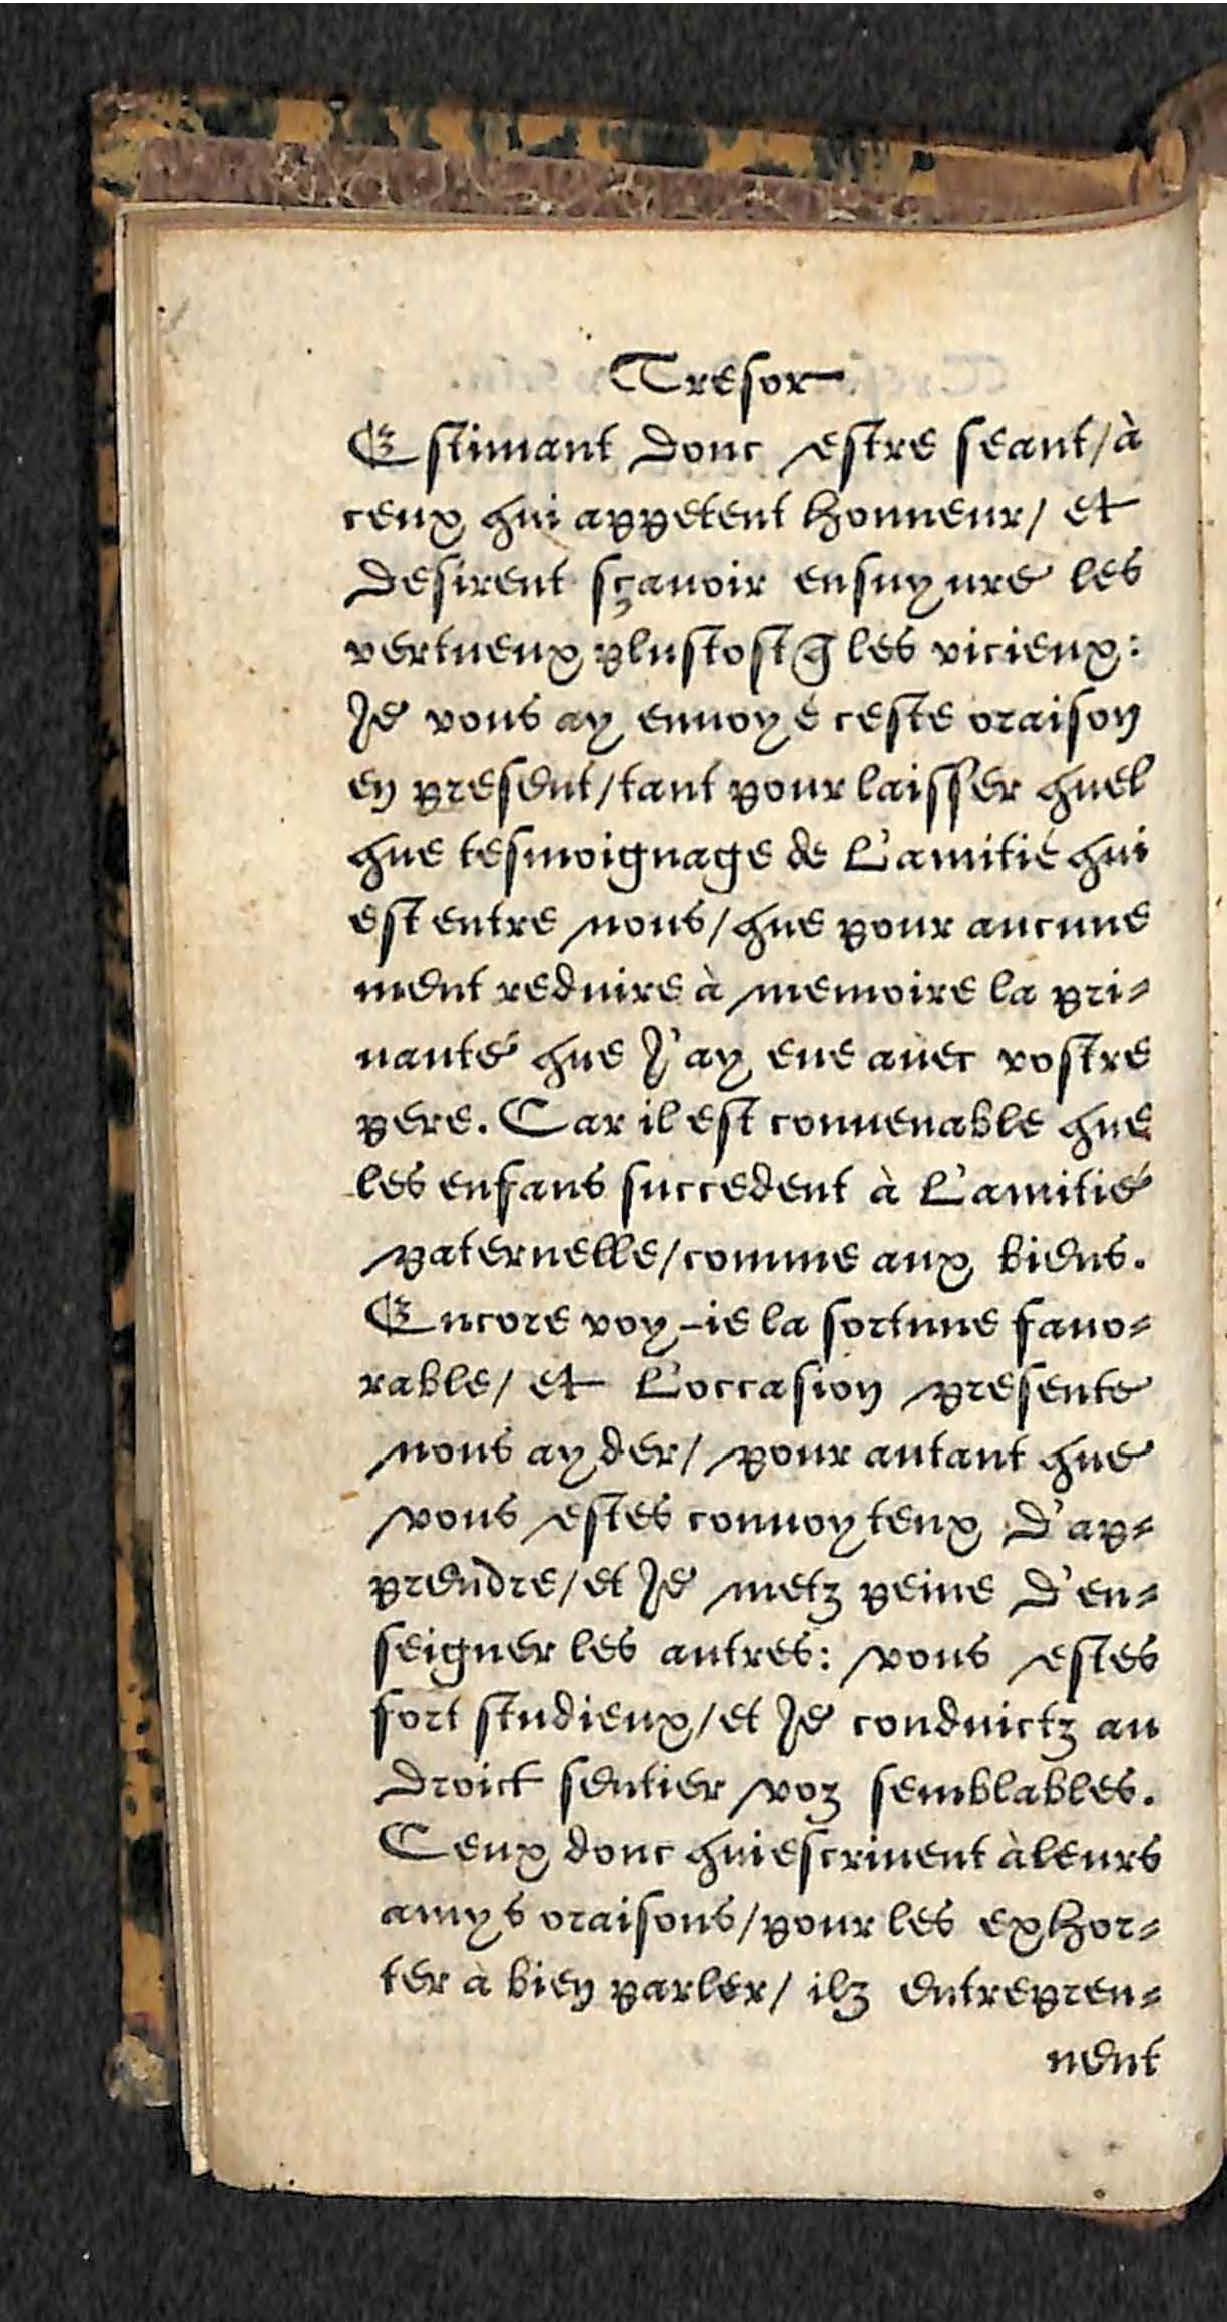 Tresor
Estimant donc estre seant/ à
ceux qui appetent honneur/ et
desirent sçauoir ensuyure les
vertueux plustost q̃ les vicieux:
Je vous ay enuoyé ceste oraison
en present/ tant pour laisser quel
que tesmoignage de L'amitié qui
est entre nous/ que pour aucune
ment reduire à memoire la pri-
uauté que J'ay eue auec vostre
pere. Car il est conuenable que
les enfans succedent à L'amitié
paternelle/ comme aux biens.
Encore voy-ie la fortune fauo-
rable/ et L'occasion presente
nous ayder/ pour autant que
vous estes conuoyteux D'ap-
prendre/ et Je metz peine D'en-
seigner les autres: vous estes
fort studieux/ et Je conduictz au
droict sentier voz semblables.
Ceux donc qui escriuent à leurs
amys oraisons/ pour les exhor-
ter à bien parler/ ilz entrepren-
nent